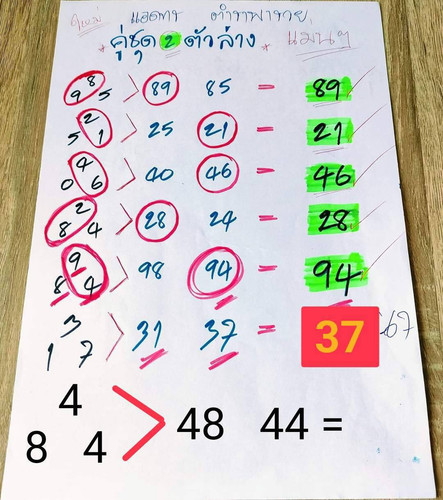 ใหม่ แอดการ ตำราพารวย
* คู่ชุด 2 ตัวล่าง * แม่นๆ
9 8 5 > 89 85 = 89
5 2 1 > 25 21 = 21
0 4 6 > 40 46 = 46
8 2 4 > 28 24 = 28
8 9 4 > 98 94 = 94
1 3 7 > 31 37 = 37
8 4 4 > 48 44 =